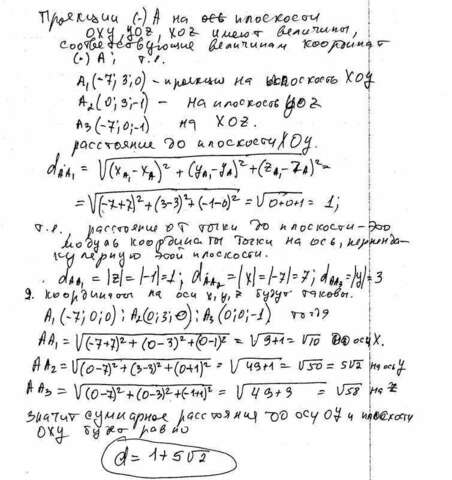 Проекции (·) A на плоскости
OXY, YOZ, XOZ имеют величины,
соответствующие величинам координат
(·) A; т.е.
A₁(-7; 3; 0) - проекция на плоскость XOY
A₂(0; 3; -1) - на плоскость YOZ
A₃(-7; 0; -1) на XOZ.
расстояние до плоскости XOy.
d_AA₁ = √((x_A₁-x_A)² + (y_A₁-y_A)² + (z_A₁-z_A)²) =
= √((-7+7)² + (3-3)² + (-1-0)²) = √(0+0+1) = 1;
т.е. расстояние от точки до плоскости - это
модуль координаты точки на ось, перпенди-
кулярную этой плоскости.
d_AA₁ = |z| = |-1| = 1; d_AA₂ = |x| = |-7| = 7; d_AA₃ = |y| = 3
2. координаты на оси x, y, z будут таковы.
A₁(-7; 0; 0); A₂(0; 3; 0); A₃(0; 0; -1) тогда
AA₁ = √((-7+7)² + (0-3)² + (0-1)²) = √(9+1) = √10 до оси X.
AA₂ = √((0-7)² + (3-3)² + (0+1)²) = √(49+1) = √50 = 5√2 на ось y
AA₃ = √((0-7)² + (0-3)² + (-1+1)²) = √(49+9) = √58 на z
Значит суммарное расстояния до оси OY и плоскости
OXY будет равно
d = 1 + 5√2